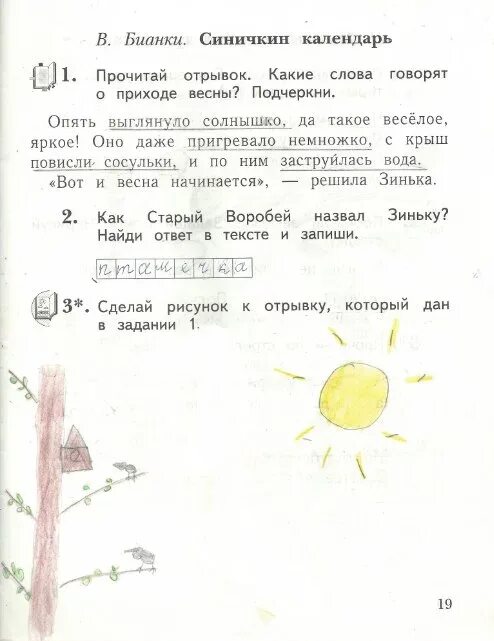 В. Бианки. Синичкин календарь
1. Прочитай отрывок. Какие слова говорят
о приходе весны? Подчеркни.
Опять выглянуло солнышко, да такое весёлое,
яркое! Оно даже пригревало немножко, с крыш
повисли сосульки, и по ним заструилась вода.
«Вот и весна начинается», — решила Зинька.
2. Как Старый Воробей назвал Зиньку?
Найди ответ в тексте и запиши.
пташечка
3*. Сделай рисунок к отрывку, который дан
в задании 1.
19